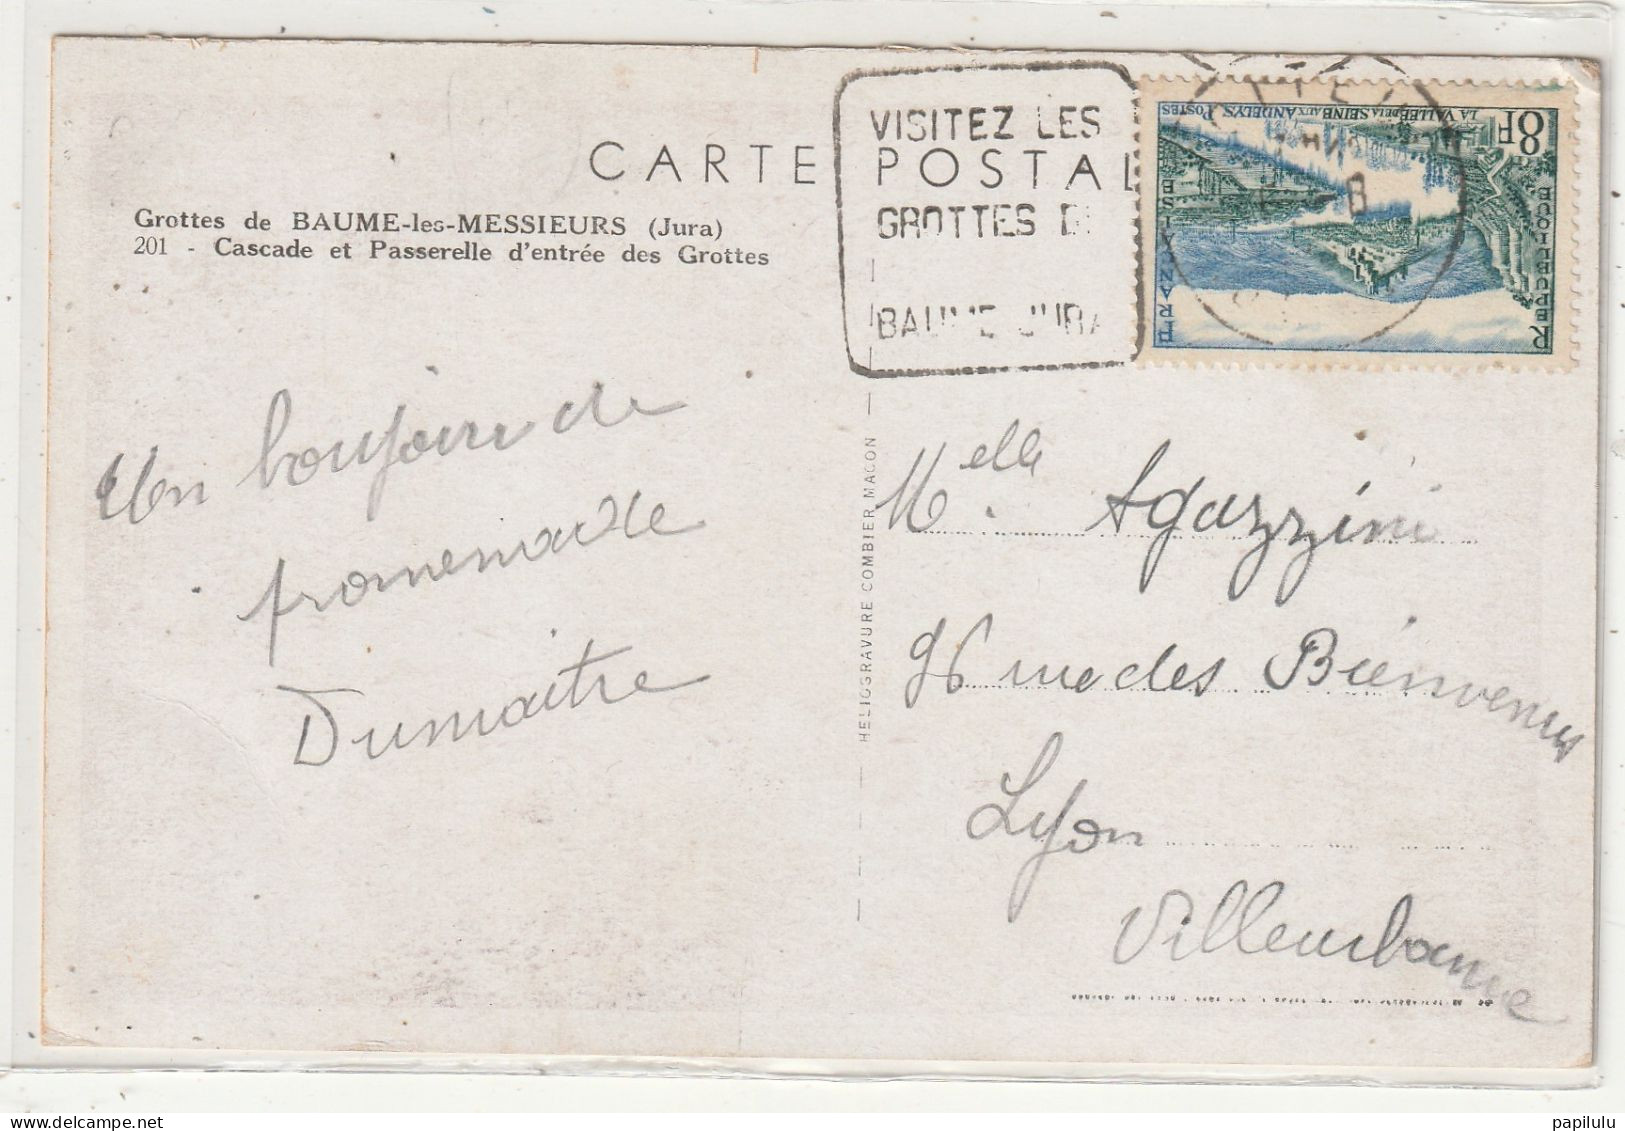 CARTE POSTAL
Grottes de BAUME-les-MESSIEURS (Jura)
201 - Cascade et Passerelle d'entrée des Grottes
VISITEZ LES
GROTTES DE
BAUME JURA
8F
LA VALLÉE DE LA SEINE AUX ANDELYS POSTES
REPUBLIQUE
FRANÇAISE
Un bonjour de
promenade
Dumaitre
HELIOGRAVURE COMBIER MACON
Melle Agazzini
96 rue des Bienvenus
Lyon
Villeurbanne
papilulu